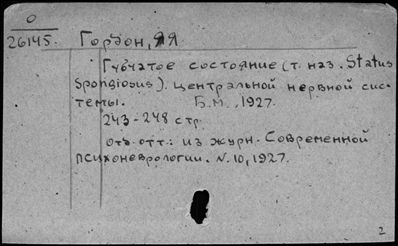 0
26145. Гордон, Я Я
Губчатое состояние (т. наз. Status
spongiosus). центральной нервной сис-
темы. Б.М., 1927.
243-248 стр.
отд. отт.: из журн. Современной
психоневрологии. N. 10, 1927.
2